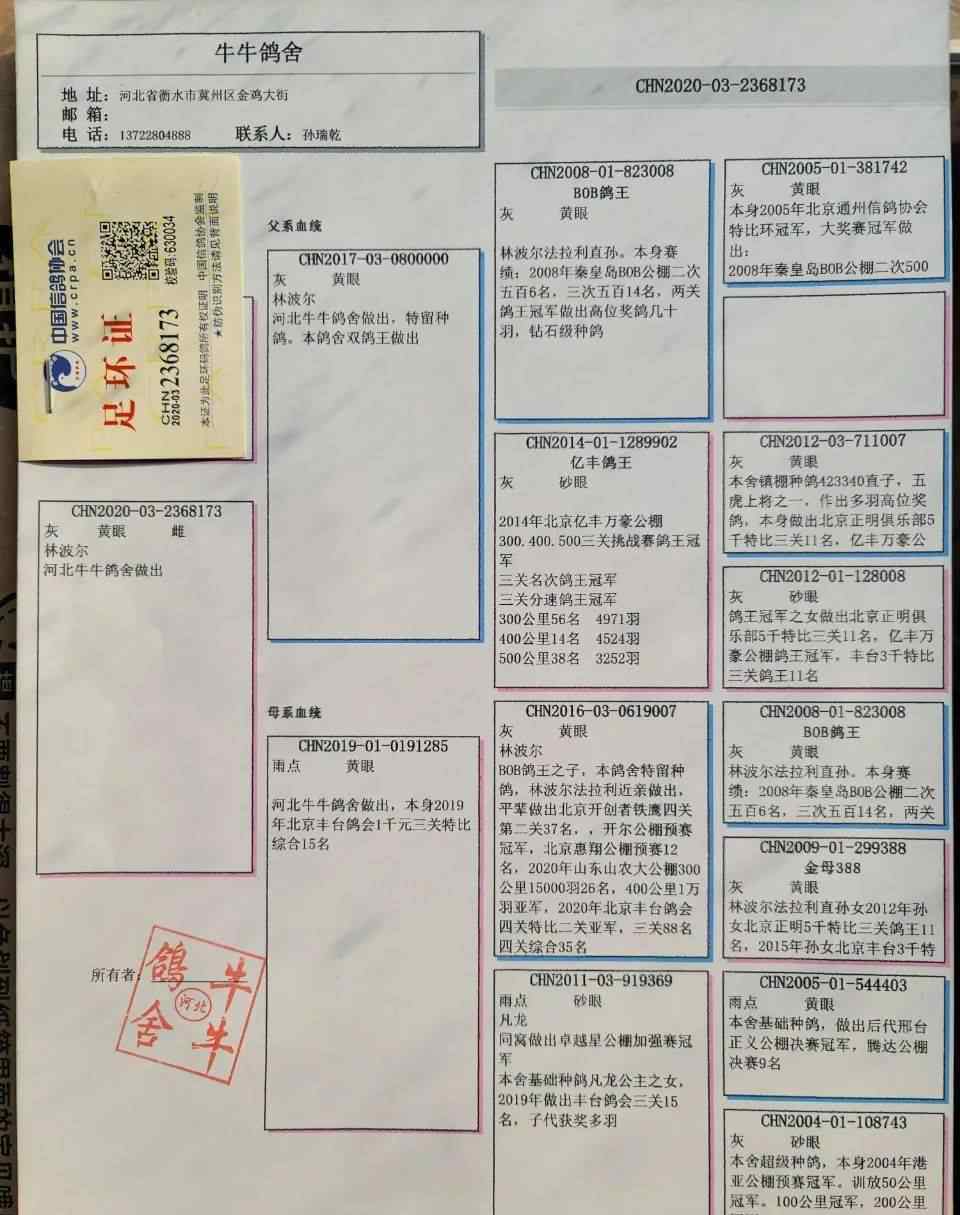 牛牛鸽舍
地 址: 河北省衡水市冀州区金鸡大街
邮 箱:
电 话: 13722804888 联系人: 孙瑞乾
CHN2020-03-2368173
中国信鸽协会
www.crpa.cn
足环证
CHN
2020-03 2368173
校验码:630034
本证为此足环码鸽所有权证明 中国信鸽协会监制
★防伪识别方法请见背面说明
CHN2020-03-2368173
灰 黄眼 雌
林波尔
河北牛牛鸽舍做出
所有者:
鸽舍
河北
牛牛
父系血统
CHN2017-03-0800000
灰 黄眼
林波尔
河北牛牛鸽舍做出,特留种
鸽。本鸽舍双鸽王做出
母系血统
CHN2019-01-0191285
雨点 黄眼
河北牛牛鸽舍做出,本身2019
年北京丰台鸽会1千元三关特比
综合15名
CHN2008-01-823008
BOB鸽王
灰 黄眼
林波尔法拉利直孙。本身赛
绩:2008年秦皇岛BOB公棚二次
五百6名,三次五百14名,两关
鸽王冠军做出高位奖鸽几十
羽,钻石级种鸽
CHN2014-01-1289902
亿丰鸽王
灰 砂眼
2014年北京亿丰万豪公棚
300.400.500三关挑战赛鸽王冠
军
三关名次鸽王冠军
三关分速鸽王冠军
300公里56名 4971羽
400公里14名 4524羽
500公里38名 3252羽
CHN2016-03-0619007
灰 黄眼
林波尔
BOB鸽王之子,本鸽舍特留种
鸽,林波尔法拉利近亲做出,
平辈做出北京开创者铁鹰四关
第二关37名,,开尔公棚预赛
冠军,北京惠翔公棚预赛12
名,2020年山东山农大公棚300
公里15000羽26名,400公里1万
羽亚军,2020年北京丰台鸽会
四关特比二关亚军,三关88名
四关综合35名
CHN2011-03-919369
雨点 砂眼
凡龙
同窝做出卓越星公棚加强赛冠
军
本舍基础种鸽凡龙公主之女,
2019年做出丰台鸽会三关15
名,子代获奖多羽
CHN2005-01-381742
灰 黄眼
本身2005年北京通州信鸽协会
特比环冠军,大奖赛冠军做
出:
2008年秦皇岛BOB公棚二次500
CHN2012-03-711007
灰 黄眼
本舍镇棚种鸽423340直子,五
虎上将之一,作出多羽高位奖
鸽,本身做出北京正明俱乐部5
千特比三关11名,亿丰万豪公
CHN2012-01-128008
灰 砂眼
鸽王冠军之女做出北京正明俱
乐部5千特比三关11名,亿丰万
豪公棚鸽王冠军,丰台3千特比
三关鸽王11名
CHN2008-01-823008
BOB鸽王
灰 黄眼
林波尔法拉利直孙。本身赛
绩:2008年秦皇岛BOB公棚二次
五百6名,三次五百14名,两关
CHN2009-01-299388
金母388
灰 黄眼
林波尔法拉利直孙女2012年孙
女北京正明5千特比三关鸽王11
名,2015年孙女北京丰台3千特
CHN2005-01-544403
雨点 黄眼
本舍基础种鸽,做出后代邢台
正义公棚决赛冠军,腾达公棚
决赛9名
CHN2004-01-108743
灰 砂眼
本舍超级种鸽,本身2004年港
亚公棚预赛冠军。训放50公里
冠军。100公里冠军,200公里